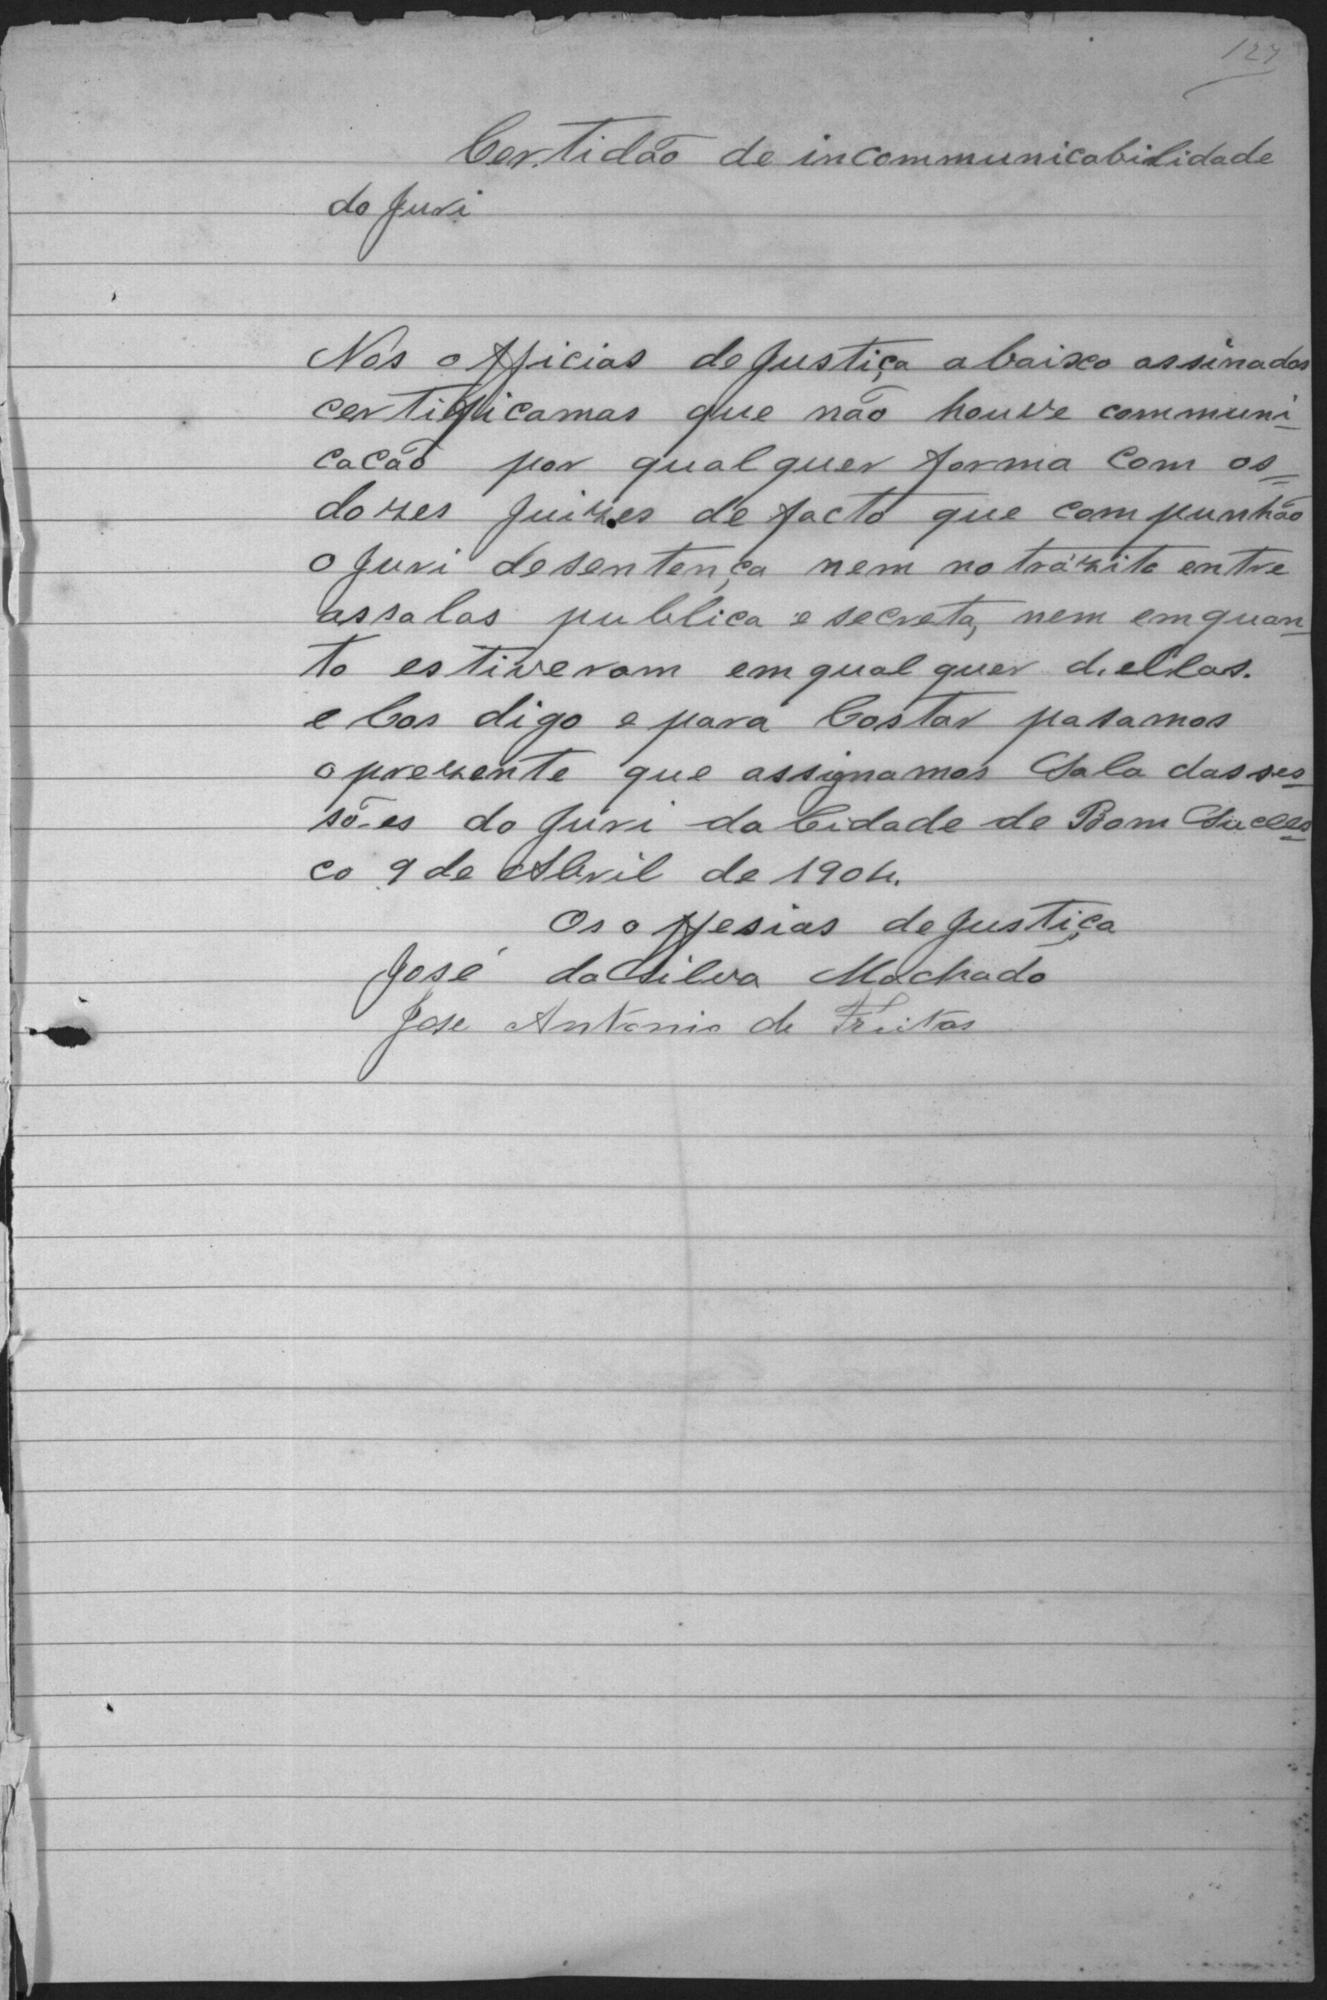 127
Certidão de incommunicabilidade
do Juri
Nós officias de Justiça abaixo assinados
certificamas que não houve communi
cacão por qualquer forma com os
dozes Juizes de facto que compunhão
o Juri de sentença nem no trázito entre
as salas publica e secreta, nem emquan
to estiveram em qual quer d.ellas.
e Cos digo e para Costar pasamos
o prezente que assignamos Sala das ses
sões do Juri da Cidade de Bom Succes
co 9 de Abril de 1904.
Os offesias de Justiça
José da Silva Machado
Jose Antonio de Freitas